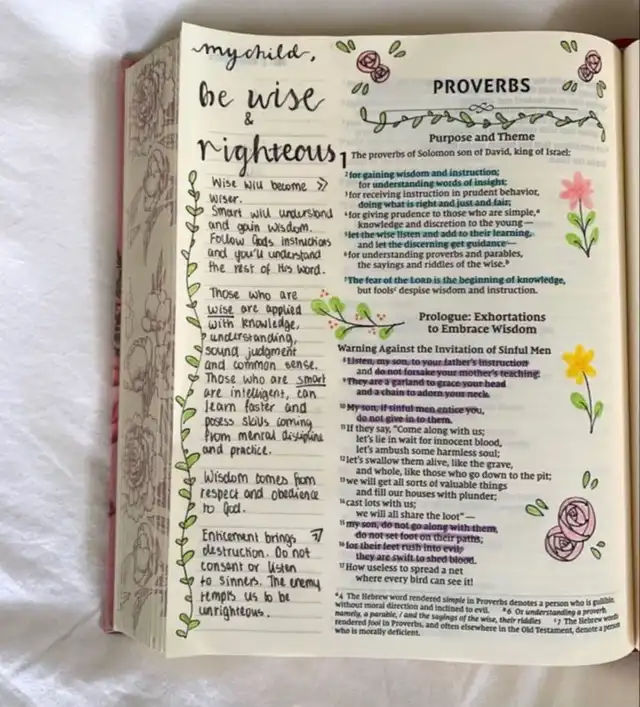 my child,
be wise
&
righteous
Wise will become >>
wiser.
Smart will understand
and gain wisdom.
Follow Gods instructions
and you'll understand
the rest of His Word.
Those who are
wise are applied
with knowledge,
understanding,
sound judgment
and common sense.
Those who are smart
are intelligent, can
learn faster and
posess skills coming
from mental discipline
and practice.
Wisdom comes from
respect and obedience
to God.
Enticement brings
destruction. Do not
consent or listen
to sinners. The enemy
tempts us to be
unrighteous.
PROVERBS
Purpose and Theme
1 The proverbs of Solomon son of David, king of Israel:
2 for gaining wisdom and instruction;
for understanding words of insight;
3 for receiving instruction in prudent behavior,
doing what is right and just and fair;
4 for giving prudence to those who are simple,a
knowledge and discretion to the young—
5 let the wise listen and add to their learning,
and let the discerning get guidance—
6 for understanding proverbs and parables,
the sayings and riddles of the wise.b
7 The fear of the LORD is the beginning of knowledge,
but foolsc despise wisdom and instruction.
Prologue: Exhortations
to Embrace Wisdom
Warning Against the Invitation of Sinful Men
8 Listen, my son, to your father's instruction
and do not forsake your mother's teaching.
9 They are a garland to grace your head
and a chain to adorn your neck.
10 My son, if sinful men entice you,
do not give in to them.
11 If they say, "Come along with us;
let's lie in wait for innocent blood,
let's ambush some harmless soul;
12 let's swallow them alive, like the grave,
and whole, like those who go down to the pit;
13 we will get all sorts of valuable things
and fill our houses with plunder;
14 cast lots with us;
we will all share the loot"—
15 my son, do not go along with them,
do not set foot on their paths;
16 for their feet rush into evil,
they are swift to shed blood.
17 How useless to spread a net
where every bird can see it!
a 4 The Hebrew word rendered simple in Proverbs denotes a person who is gullible,
without moral direction and inclined to evil. b 6 Or understanding a proverb,
namely, a parable, / and the sayings of the wise, their riddles c 7 The Hebrew words
rendered fool in Proverbs, and often elsewhere in the Old Testament, denote a person
who is morally deficient.